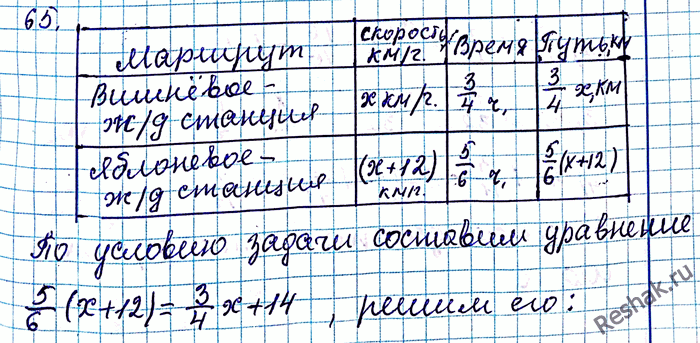 65.
Маршрут скорость, км/г. Время Путь, км
Вишнёвое - ж/д станция x км/г. 3/4 ч, 3/4 x, км
Яблоневое - ж/д станция (x+12) км/г. 5/6 ч, 5/6 (x+12)
По условию задачи составим уравнение
5/6 (x+12) = 3/4 x + 14 , решим его:
Reshak.ru